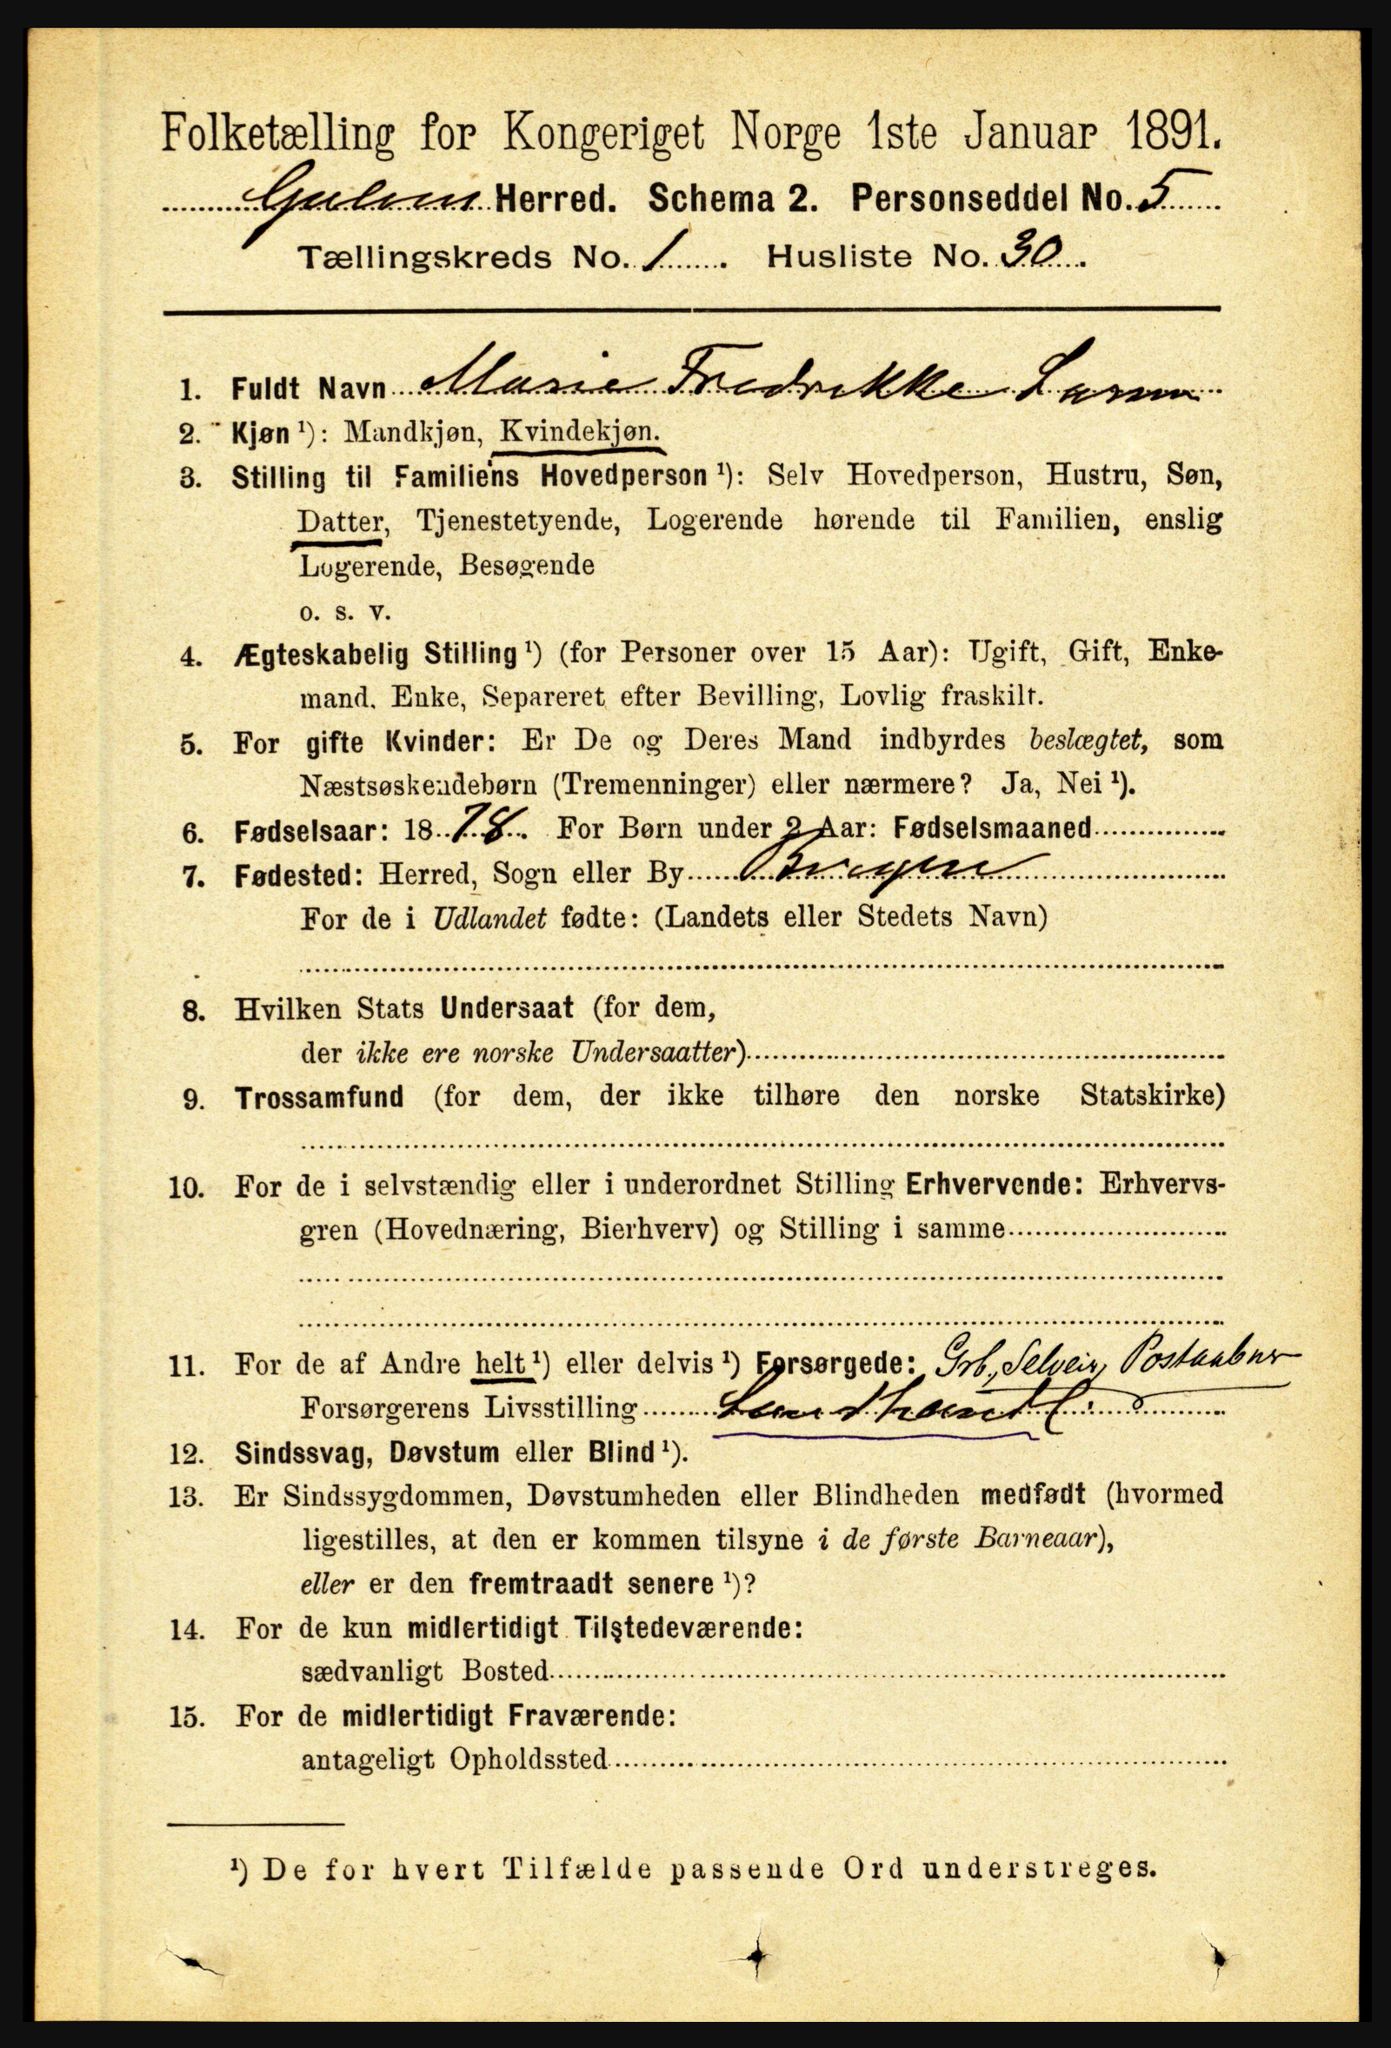 Folketælling for Kongeriget Norge 1ste Januar 1891.
Gulen Herred. Schema 2. Personseddel No. 5
Tællingskreds No. 1. Husliste No. 30.
1. Fuldt Navn Marie Fredrikke Larsen
2. Kjøn ¹): Mandkjøn, Kvindekjøn.
3. Stilling til Familiens Hovedperson ¹): Selv Hovedperson, Hustru, Søn,
Datter, Tjenestetyende, Logerende hørende til Familien, enslig
Logerende, Besøgende
o. s. v.
4. Ægteskabelig Stilling ¹) (for Personer over 15 Aar): Ugift, Gift, Enke-
mand, Enke, Separeret efter Bevilling, Lovlig fraskilt.
5. For gifte Kvinder: Er De og Deres Mand indbyrdes beslægtet, som
Næstsøskendebørn (Tremenninger) eller nærmere? Ja, Nei ¹).
6. Fødselsaar: 1878. For Børn under 2 Aar: Fødselsmaaned
7. Fødested: Herred, Sogn eller By Bergen
For de i Udlandet fødte: (Landets eller Stedets Navn)
8. Hvilken Stats Undersaat (for dem,
der ikke ere norske Undersaatter)
9. Trossamfund (for dem, der ikke tilhøre den norske Statskirke)
10. For de i selvstændig eller i underordnet Stilling Erhvervende: Erhvervs-
gren (Hovednæring, Bierhverv) og Stilling i samme
11. For de af Andre helt ¹) eller delvis ¹) Forsørgede: Grb., Selveir, Postaabner
Forsørgerens Livsstilling Landhandl.
12. Sindssvag, Døvstum eller Blind ¹).
13. Er Sindssygdommen, Døvstumheden eller Blindheden medfødt (hvormed
ligestilles, at den er kommen tilsyne i de første Barneaar),
eller er den fremtraadt senere ¹)?
14. For de kun midlertidigt Tilstedeværende:
sædvanligt Bosted
15. For de midlertidigt Fraværende:
antageligt Opholdssted
¹) De for hvert Tilfælde passende Ord understreges.